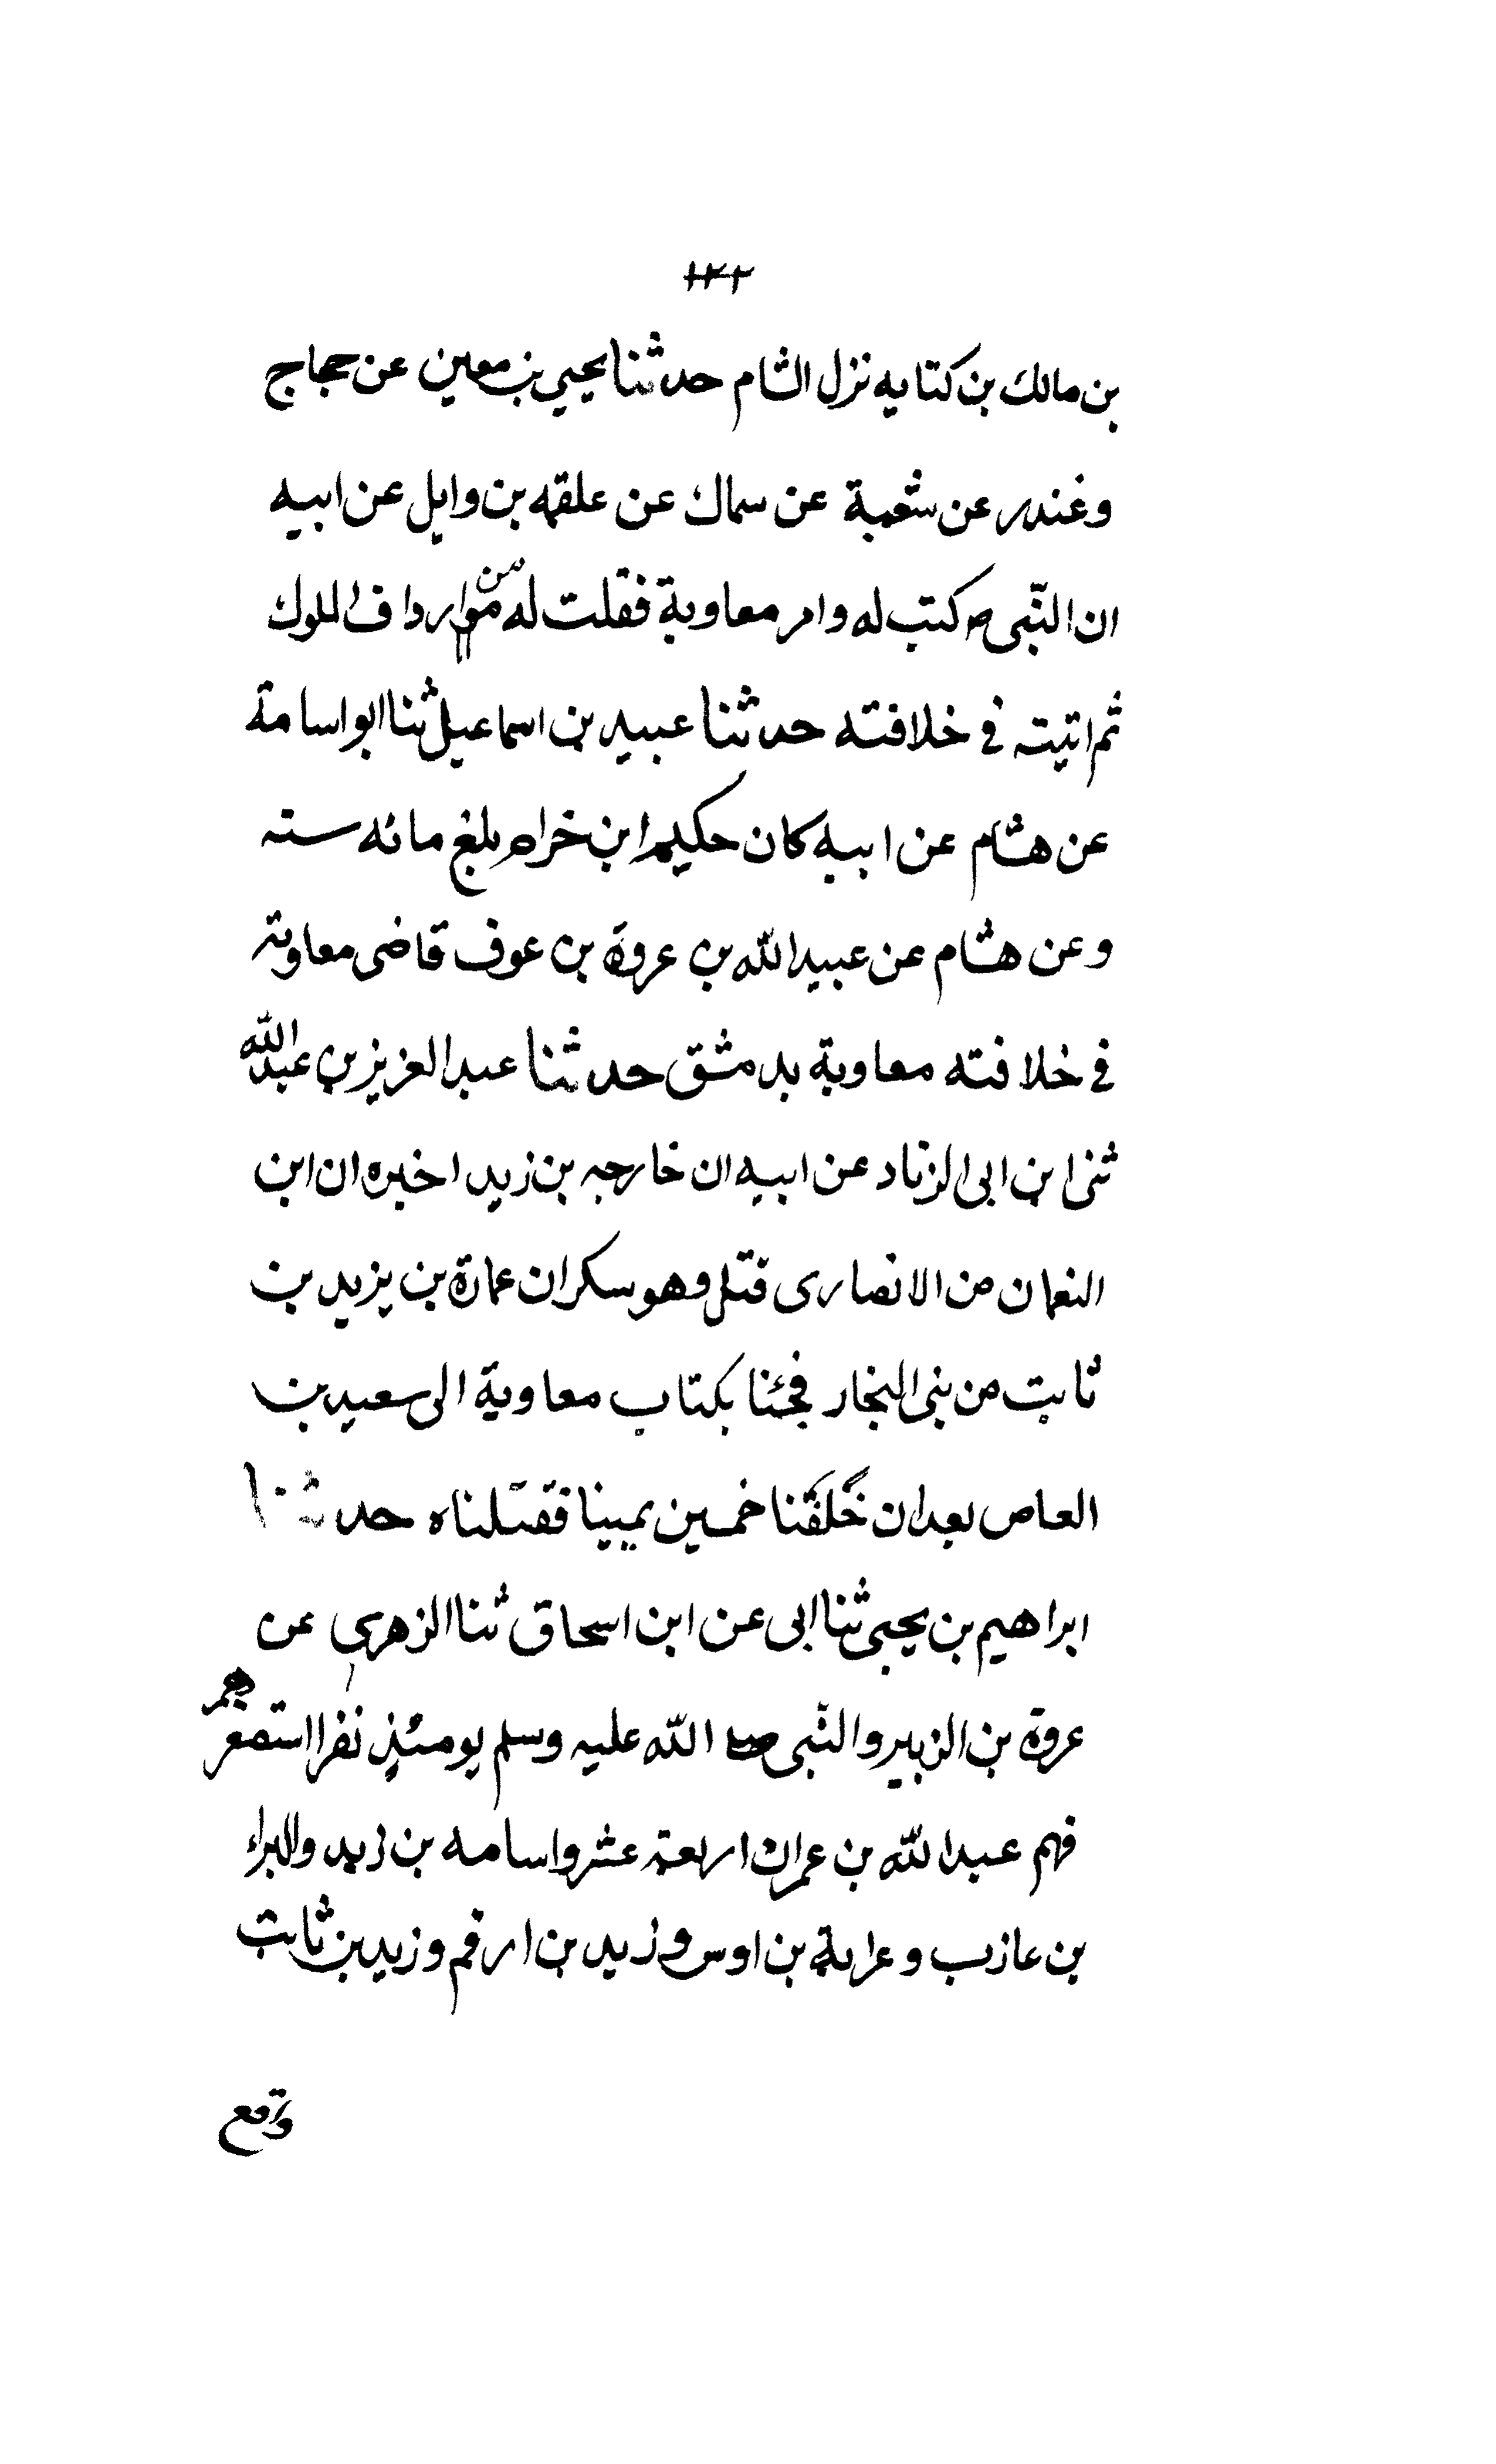 ١٢٢
بن مالك بن كتايه نزل الشام حدثنا يحيي بن معين عن حجاج
وغندر عن شعبة عن سماك عن علقمه بن وايل عن ابيه
ان النّبى ص كتب له وامر معاوية فقلت له من ارداف الملوك
ثم اتيته فى خلافته حدثنا عبيد بن اسماعيل ثنا ابو اسامة
عن هشام عن ابيه كان حكيم ابن خرام بلغ مائه سته
وعن هشام عن عبيد الله بن عروة بن عوف قاضى معاوية
فى خلافته معاوية بدمشق حدثنا عبد العزيز بن عبد الله
ثنى ابن ابى الزناد عن ابيه ان خارجه بن زيد اخبره ان ابن
النعمان من الانصارى قتل وهو سكران عمارة بن يزيد بن
ثابت من بنى النجار فجئنا بكتاب معاوية الى سعيد بن
العاص بعد ان حَلَفَنا خمسين يمينا فقتلناه حدثنا
ابراهيم بن يحيى ثنا ابى عن ابن اسحاق ثنا الزهري عن
عروة بن الزبير والنّبى صلى الله عليه وسلم يومئذٍ نفرا استصغرهم
فهم عبد الله بن عمر ابن اربعة عشر واسامه بن زيد والبراء
بن عازب وعرابة بن اوس وزيد بن ارقم وزيد بن ثابت